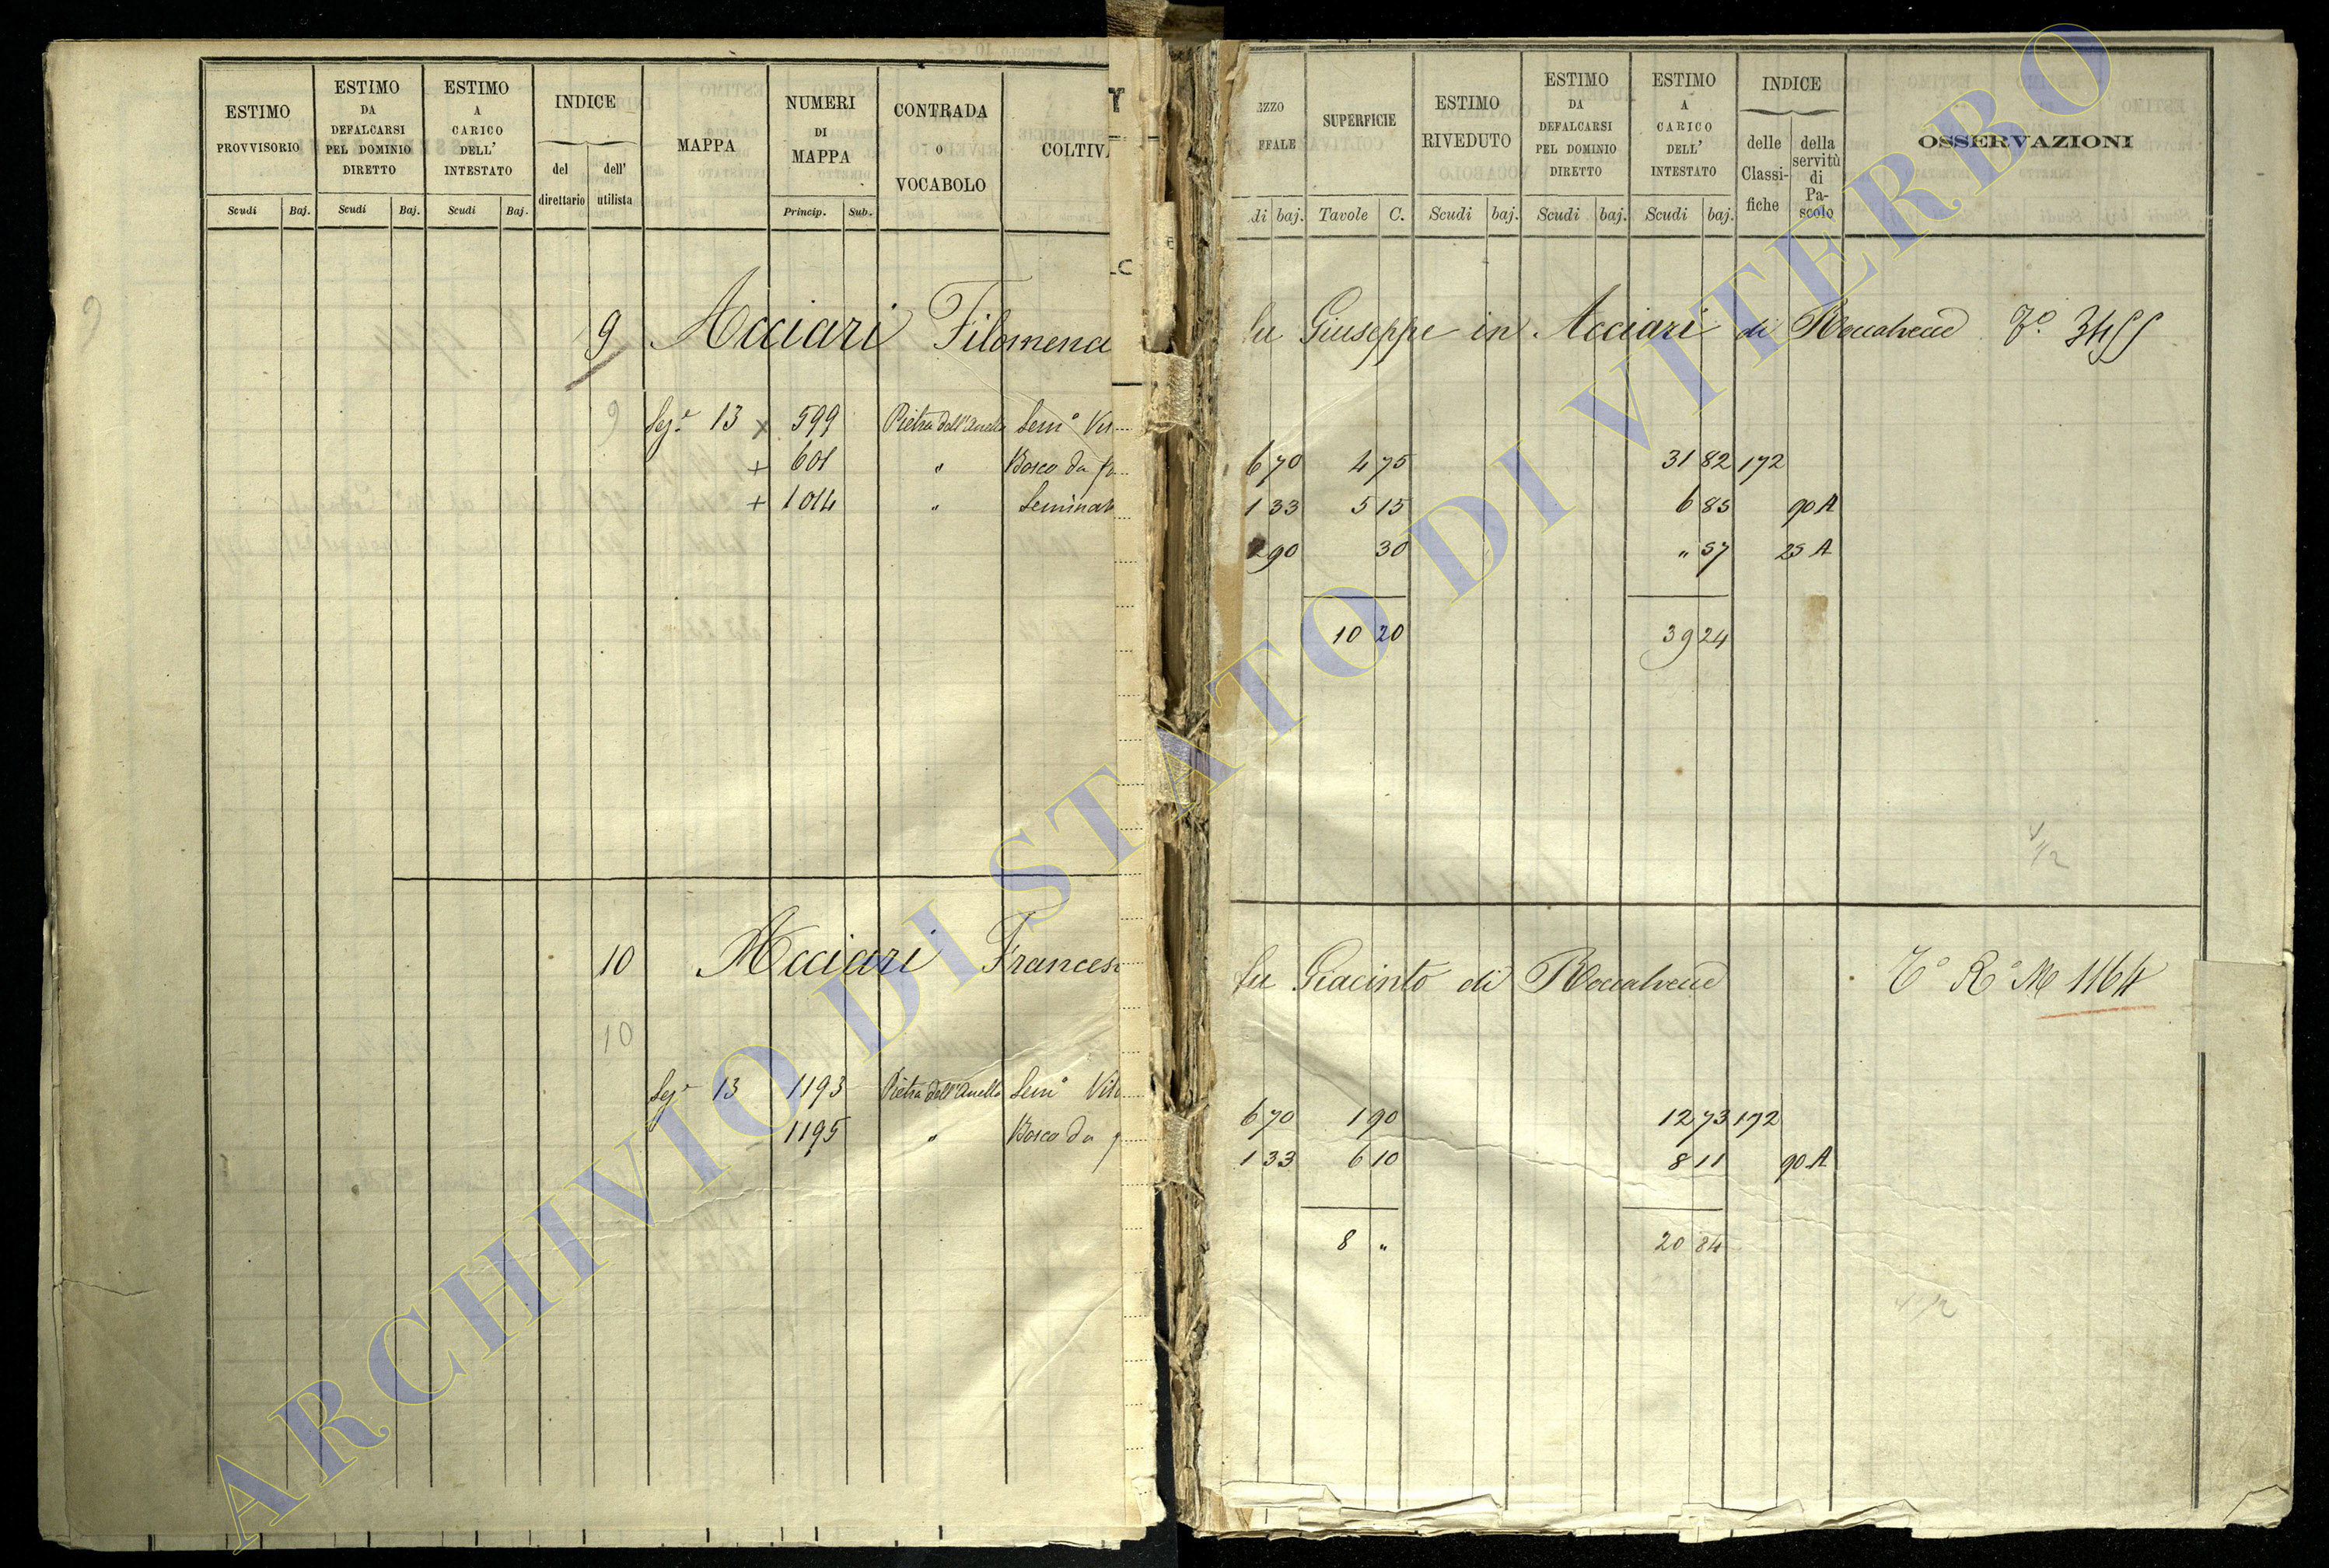 ESTIMO PROVVISORIO Scudi Baj.
ESTIMO DA DEFALCARSI PEL DOMINIO DIRETTO Scudi Baj.
ESTIMO A CARICO DELL' INTESTATO Scudi Baj.
INDICE del direttario dell' utilista
MAPPA
NUMERI DI MAPPA Princip. Sub.
CONTRADA O VOCABOLO
COLTIV
EZZO FFALE di baj.
SUPERFICIE Tavole C.
ESTIMO RIVEDUTO Scudi baj.
ESTIMO DA DEFALCARSI PEL DOMINIO DIRETTO Scudi baj.
ESTIMO A CARICO DELL' INTESTATO Scudi baj.
INDICE delle Classifiche della servitù di Pascolo
OSSERVAZIONI
9
9 Acciari Filomena fu Giuseppe in Acciari di Roccalvecce
9 Sez.e 13 x 599 Pietra dell'Anello Sem.o Vit
+ 601 " Bosco da
+ 1014 " Seminat
6 70 4 75 31 82 172
1 33 5 15 6 85 90 A
90 30 " 57 25 A
10 20 39 24
1/12
10 Acciari Francesc fu Giacinto di Roccalvecce T.o R.o N 1164
10
Sez.e 13 1193 Pietra dell'Anello Sem.o Vit
1195 " Bosco da
6 70 1 90 12 73 172
1 33 6 10 8 11 90 A
8 " 20 84
ARCHIVIO DI STATO DI VITERBO